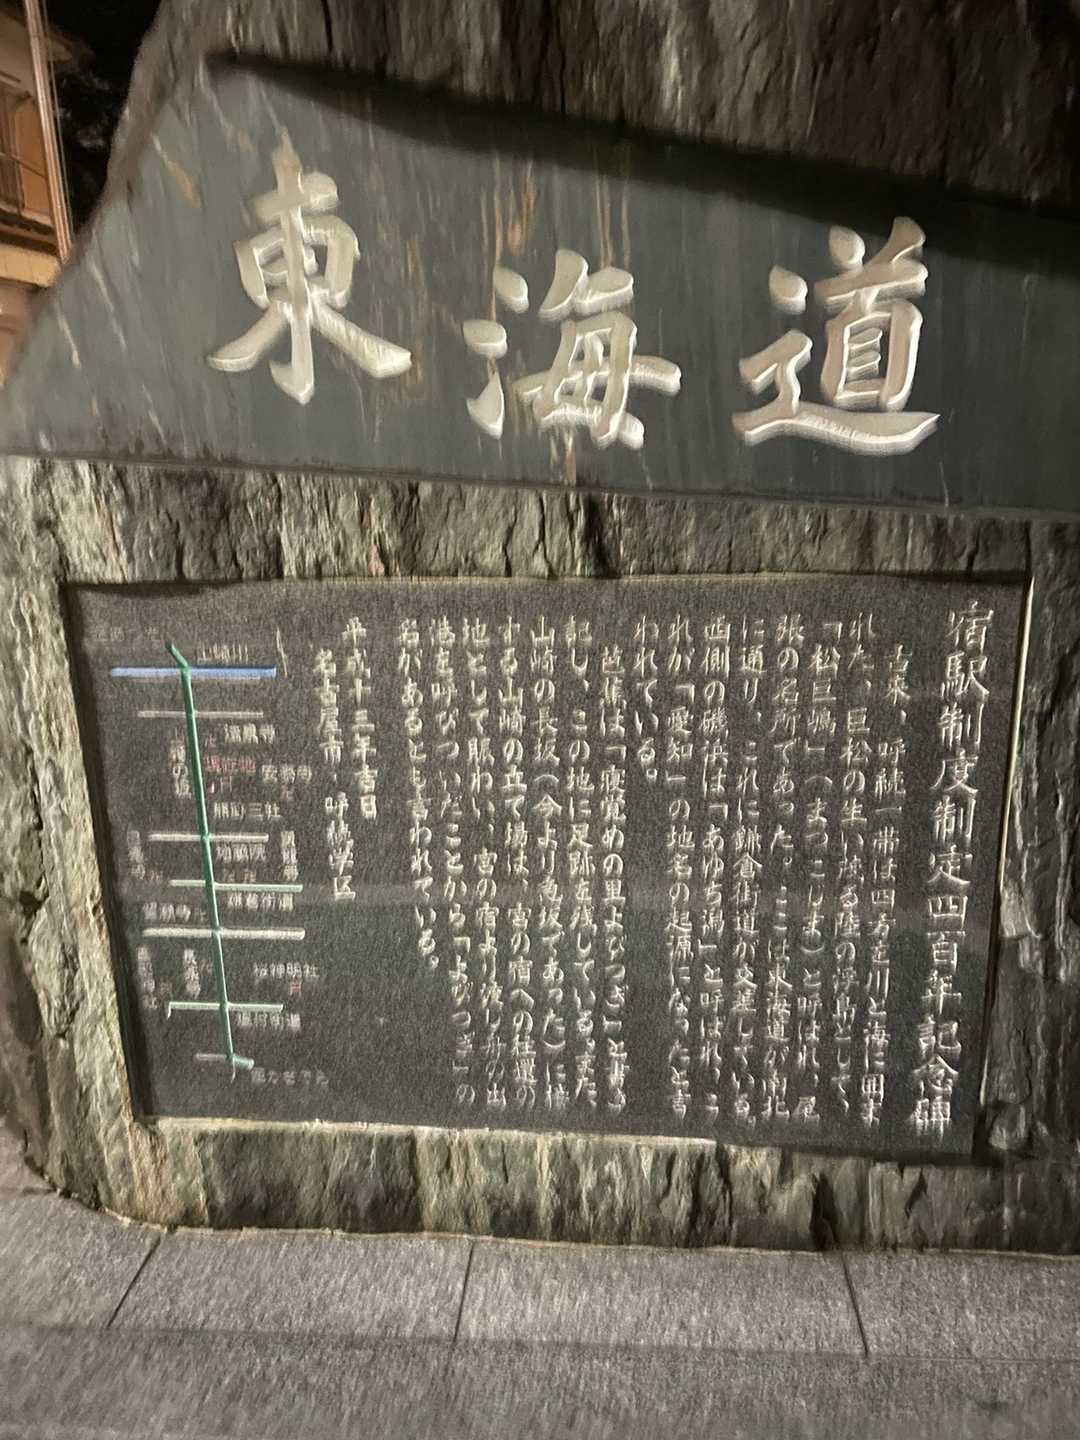 東海道
宿駅制度制定四百年記念碑
古来、呼続一帯は四方を川と海に囲ま
れた、巨松の生い茂る陸の浮島として、
「松巨嶋」(まつこじま)と呼ばれ、尾
張の名所であった。ここは東海道が南北
に通り、これに鎌倉街道が交差している。
西側の磯浜は「あゆち潟」と呼ばれ、こ
れが「愛知」の地名の起源になったと言
われている。
芭蕉は「寝覚めの里よびつぎ」と書き
記し、この地に足跡を残している。また、
山崎の長坂(今より急坂であった)に接
する山崎の立て場は、宮の宿への往還の
地として賑わい、宮の宿より渡し舟の出
港を呼びついだことから「よびつぎ」の
名があるとも言われている。
平成十三年吉日
名古屋市・呼続学区
山崎川
桜神明社
鎌倉街道